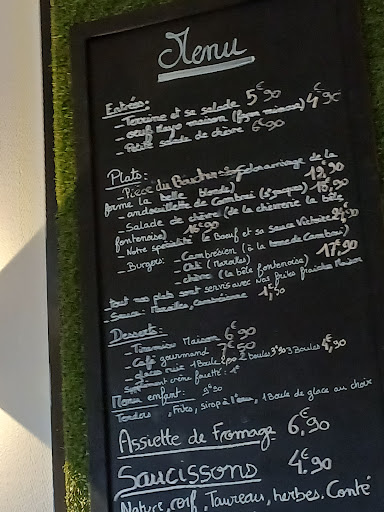 Menu
Entrées:
- Terrine et sa salade 5€90
- Oeuf Mayo maison (fyn mimosa) 4€90
- Petite salade de chèvre 6€90
Plats:
- Pièce du Boucher de la
ferme la belle blonde) 19,90
- andouillette de Cambrai 18,90
- Salade de chèvre (de la chèvrerie la bêle
fontenoise) 16€90
- Notre spécialité le Boeuf et sa sauce
- Burgers: - Cambrésien (à la tomme de Cambrai)
- Chti (Maroilles) 17€90
- chèvre (la bêle fontenoise)
tout nos plats sont servis avec nos frites fraîches Maison
- Sauce: Maroilles, cambrésienne 1,50
Desserts:
- Tiramisu Maison 6€90
- Café gourmand 7€50
- glaces 1 Boule 2 boules 3€90 3 Boules 4,90
Supplément crème fouetté: 1€
Menu enfant: 9€90
Tenders, Frites, sirop à l'eau, 1 Boule de glace au choix
Assiette de Fromage 6€,90
Saucissons 4€,90
Nature, cerf, Taureau, herbes, Comté